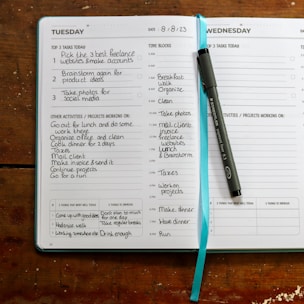 TUESDAY
DATE: 8/8/23
TOP 3 TASKS TODAY
1 Pick the 3 best freelance
websites & make accounts
2 Brainstorm again for
product ideas
3 Take photos for
social media
OTHER ACTIVITIES / PROJECTS WORKING ON:
Go out for lunch and do some
work there
Organise office and clean
Cook dinner for 2 days
Taxes
Mail client
Make invoice & send it
Continue projects
Go for a run
Come up with good ideas
Hardcore walk
Working somewhere else
Don't do too much
for one day
Take regular breaks
Drink enough
TIME BLOCKS
Breakfast
Walk
Organise
Clean
Take photos
Mail clients
Invoice
Freelance
websites
Lunch
& Brainstorm
Taxes
Work on
projects
Make dinner
Have dinner
Run
WEDNESDAY
TOP 3 TASKS TODAY
1
2
3
OTHER ACTIVITIES / PROJECTS WORKING ON: